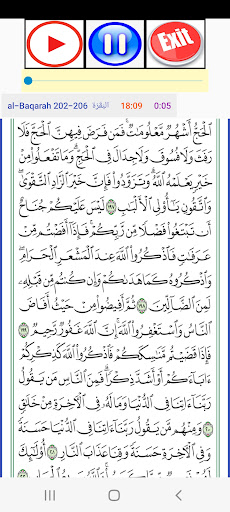 Exit
al-Baqarah 202-206 البقرة 18:09 0:05
ٱلْحَجُّ أَشْهُرٌ مَّعْلُومَٰتٌ فَمَن فَرَضَ فِيهِنَّ ٱلْحَجَّ فَلَا
رَفَثَ وَلَا فُسُوقَ وَلَا جِدَالَ فِى ٱلْحَجِّ وَمَا تَفْعَلُوا۟ مِنْ
خَيْرٍ يَعْلَمْهُ ٱللَّهُ وَتَزَوَّدُوا۟ فَإِنَّ خَيْرَ ٱلزَّادِ ٱلتَّقْوَىٰ
وَٱتَّقُونِ يَٰٓأُو۟لِى ٱلْأَلْبَٰبِ ١٩٧ لَيْسَ عَلَيْكُمْ جُنَاحٌ
أَن تَبْتَغُوا۟ فَضْلًا مِّن رَّبِّكُمْ فَإِذَآ أَفَضْتُم مِّنْ
عَرَفَٰتٍ فَٱذْكُرُوا۟ ٱللَّهَ عِندَ ٱلْمَشْعَرِ ٱلْحَرَامِ
وَٱذْكُرُوهُ كَمَا هَدَىٰكُمْ وَإِن كُنتُم مِّن قَبْلِهِۦ
لَمِنَ ٱلضَّآلِّينَ ١٩٨ ثُمَّ أَفِيضُوا۟ مِنْ حَيْثُ أَفَاضَ
ٱلنَّاسُ وَٱسْتَغْفِرُوا۟ ٱللَّهَ إِنَّ ٱللَّهَ غَفُورٌ رَّحِيمٌ ١٩٩
فَإِذَا قَضَيْتُم مَّنَٰسِكَكُمْ فَٱذْكُرُوا۟ ٱللَّهَ كَذِكْرِكُمْ
ءَابَآءَكُمْ أَوْ أَشَدَّ ذِكْرًا فَمِنَ ٱلنَّاسِ مَن يَقُولُ
رَبَّنَآ ءَاتِنَا فِى ٱلدُّنْيَا وَمَا لَهُۥ فِى ٱلْءَاخِرَةِ مِنْ خَلَٰقٍ
٢٠٠ وَمِنْهُم مَّن يَقُولُ رَبَّنَآ ءَاتِنَا فِى ٱلدُّنْيَا حَسَنَةً
وَفِى ٱلْءَاخِرَةِ حَسَنَةً وَقِنَا عَذَابَ ٱلنَّارِ ٢٠١ أُو۟لَٰٓئِكَ